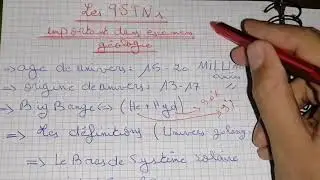 Les QSTNs
important dans examen
géologie
→ age de univers : 15-20 MILLI
→ origine de univers : 13-17 "
→ Big Bang ↔ (He + Hyd)
⇒ Les définitions (Univers galong
⇒ Le Bras de Système solaire